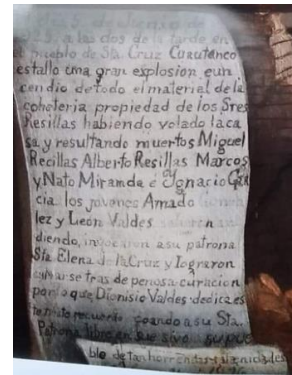 de
a las dos de la tarde en
el pueblo de Sta. Cruz Cuautenco
estallo una gran explosion e un
cendio de todo el material de la
coheteria propiedad de los Sres
Resillas habiendo volado la ca
sa y resultando muertos Miguel
Recillas Alberto Resillas Marcos
y Nato Miramda é Ygnacio Gar
cia los jovenes Amado
lez y León Valdes
diendo, invocaron a su patrona
Sta Elena de la Cruz y lograron
se tras de penosa curacion
por lo que Dionisio Valdes dedica es
te recuerdo a su Sta.
Patrona libre en su pue
blo de tan horrendas